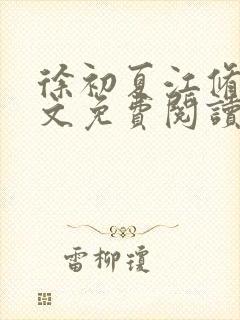 徐初夏江脩
文免費閱讀
雷柳瓊